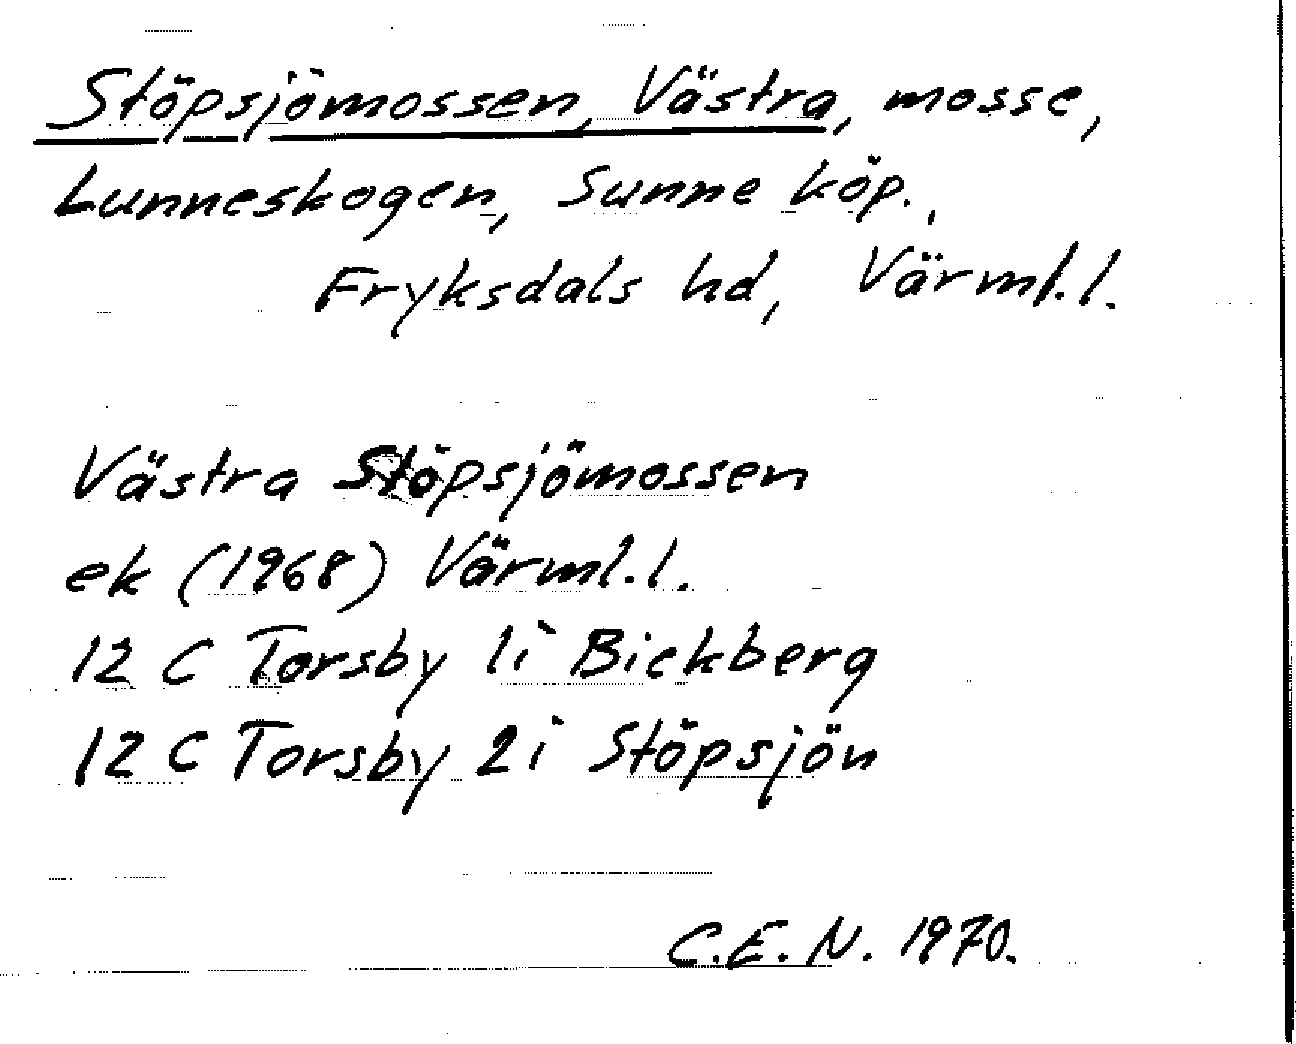 Stöpsjömossen, Västra, mosse,
Lunneskogen, Sunne köp.,
Fryksdals hd, Värml.l.
Västra Stöpsjömossen
ek (1968) Värml.l.
12 C Torsby 1i Bickberg
12 C Torsby 2i Stöpsjön
C.E.N. 1970.